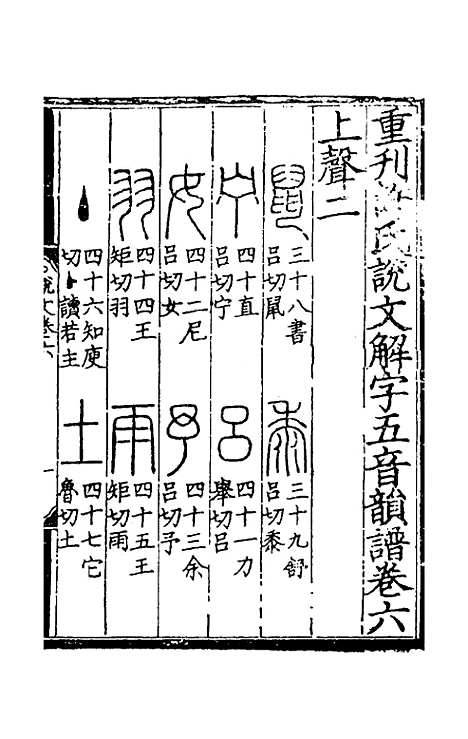 重刊許氏說文解字五音韻譜卷六
上聲二
鼠
三十八書
呂切鼠
黍
三十九舒
呂切黍
宁
四十直
呂切宁
呂
四十一力
舉切呂
女
四十二尼
呂切女
予
四十三余
呂切予
羽
四十四王
矩切羽
雨
四十五王
矩切雨
丶
四十六知庾
切丶讀若主
土
四十七它
魯切土
說文卷六
一